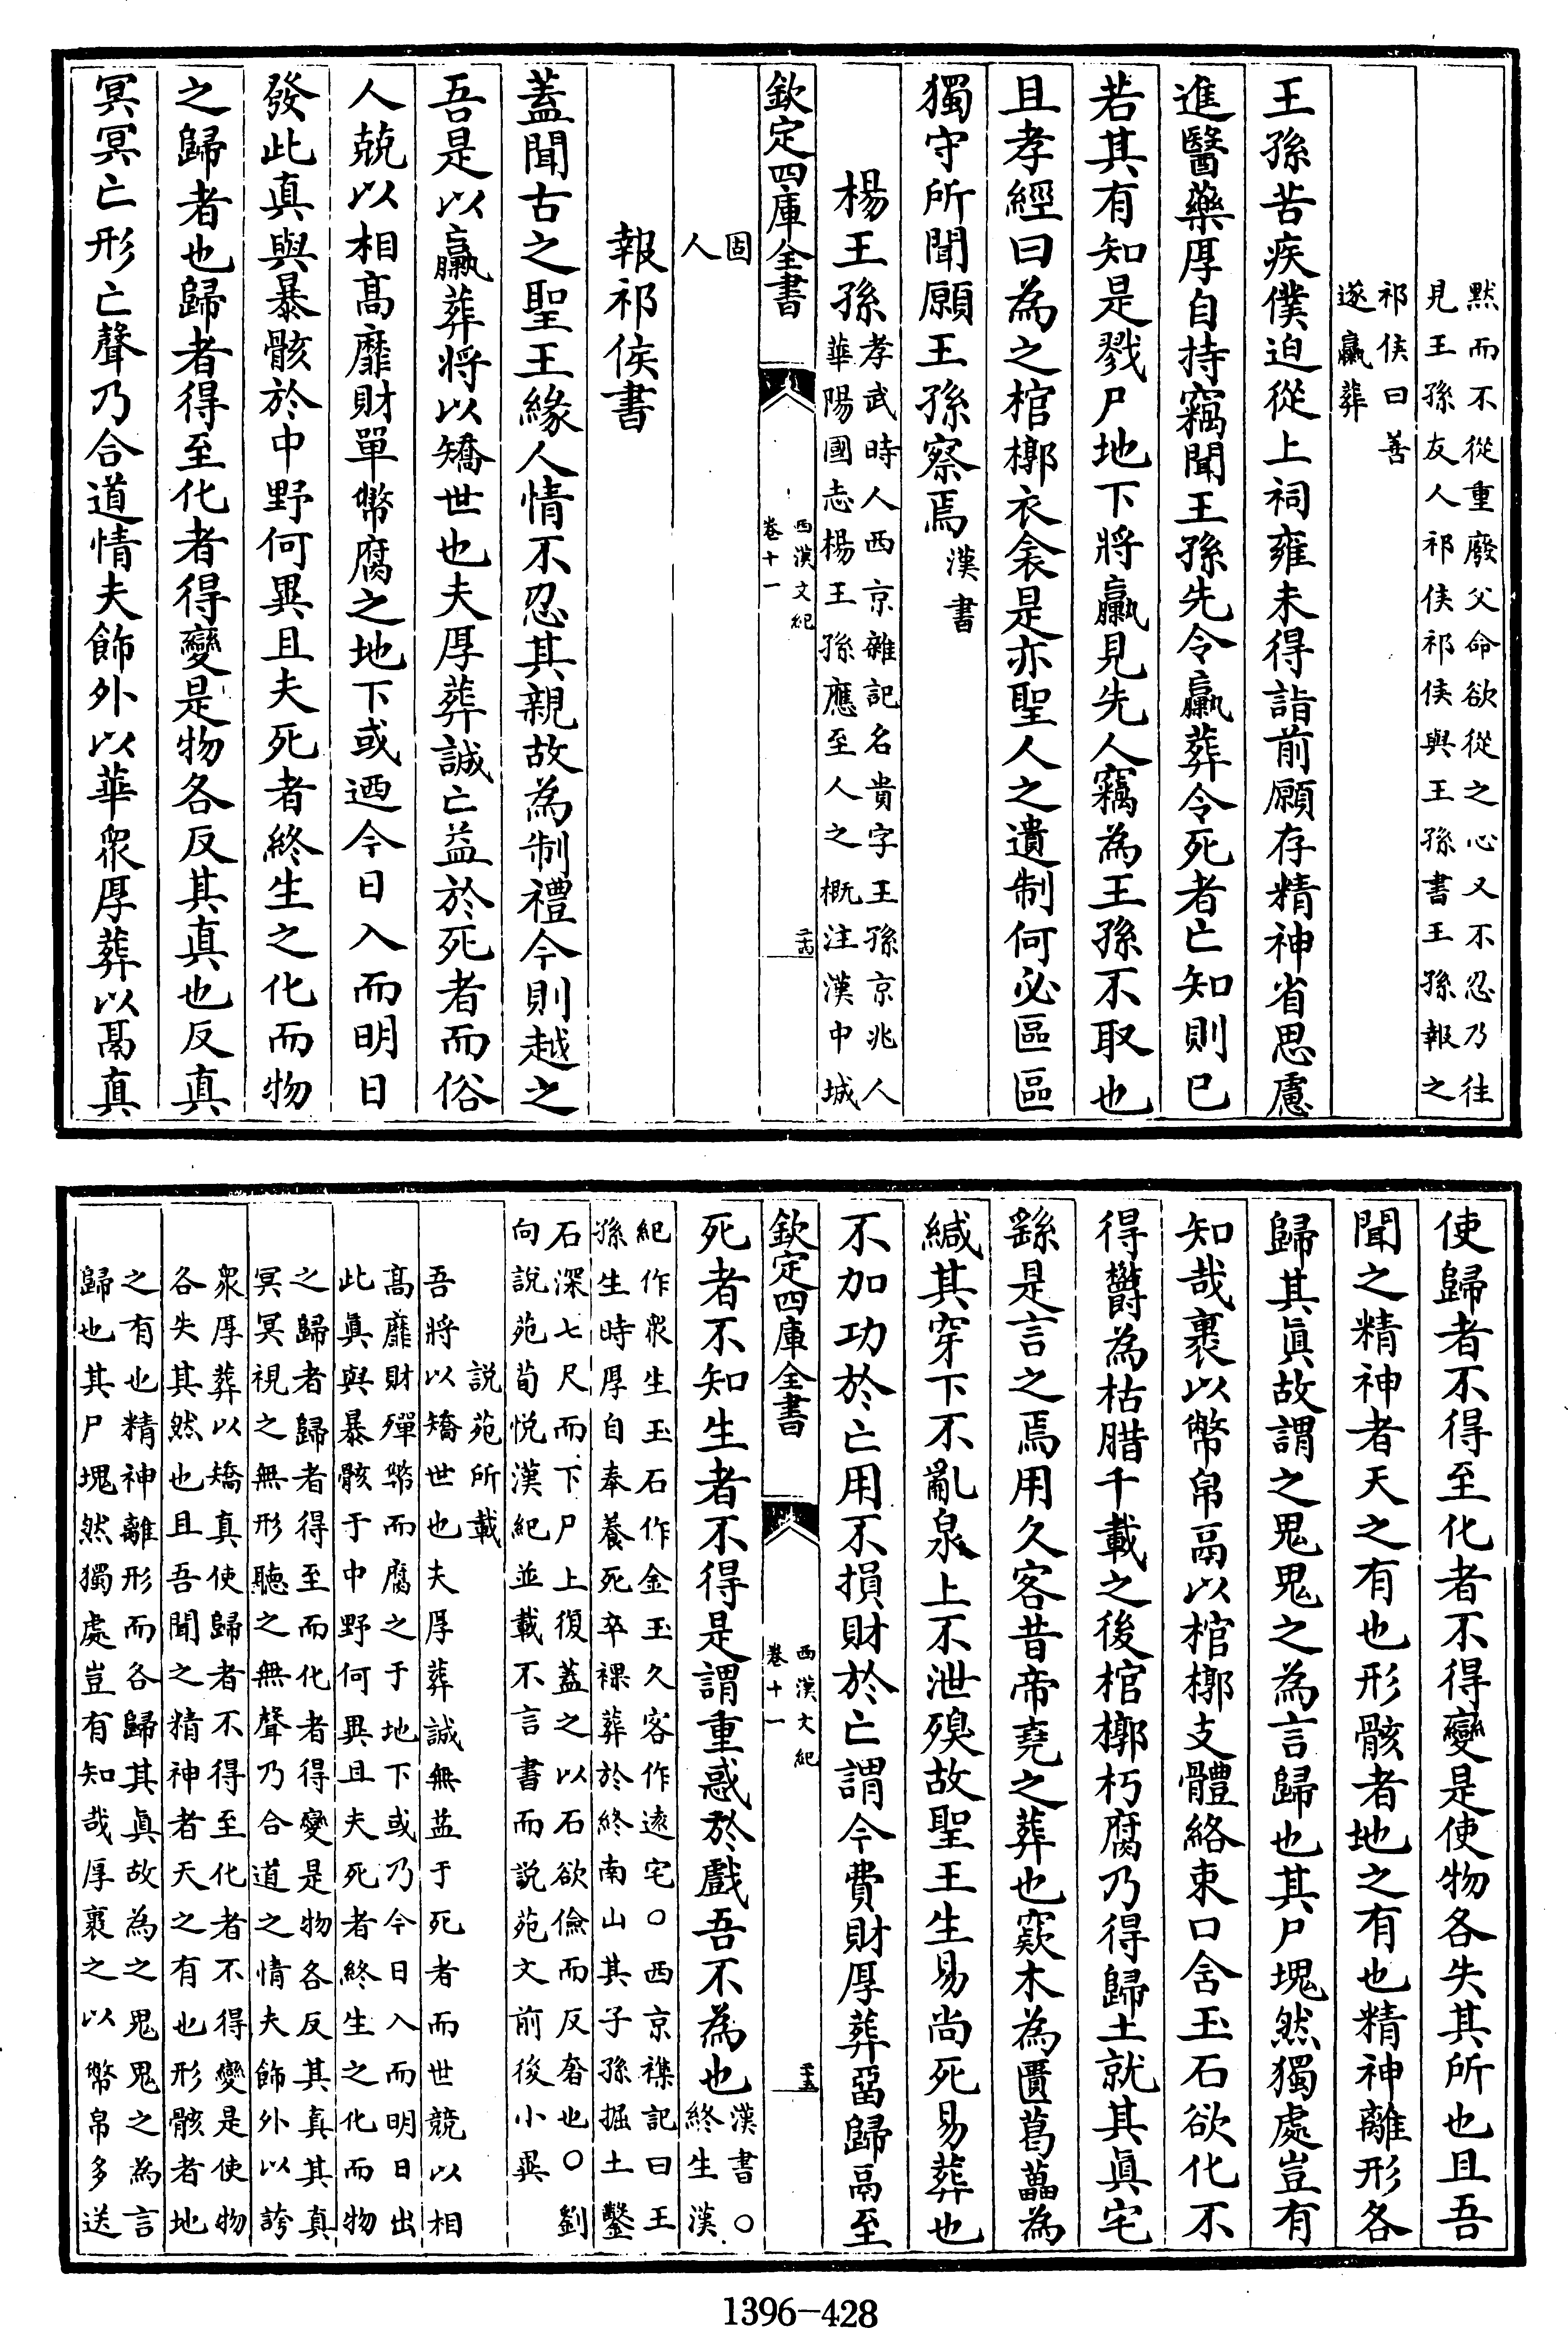 默而不從重廢父命欲從之心又不忍乃往
見王孫友人祁侯祁侯與王孫書王孫報之
祁侯曰善
遂臝葬
王孫苦疾僕迫從上祠雍未得詣前願存精神省思慮
進醫藥厚自持竊聞王孫先令臝葬令死者亡知則已
若其有知是戮尸地下將臝見先人竊為王孫不取也
且孝經曰為之棺槨衣衾是亦聖人之遺制何必區區
獨守所聞願王孫察焉漢書
楊王孫
孝武時人西京雜記名貴字王孫京兆人
華陽國志楊王孫應至人之概注漢中城
欽定四庫全書
西漢文紀
卷十一
二十四
固
人
報祁侯書
蓋聞古之聖王緣人情不忍其親故為制禮今則越之
吾是以臝葬將以矯世也夫厚葬誠亡益於死者而俗
人競以相高靡財單幣腐之地下或迺今日入而明日
發此真與暴骸於中野何異且夫死者終生之化而物
之歸者也歸者得至化者得變是物各反其真也反真
冥冥亡形亡聲乃合道情夫飾外以華衆厚葬以鬲真
使歸者不得至化者不得變是使物各失其所也且吾
聞之精神者天之有也形骸者地之有也精神離形各
歸其真故謂之鬼鬼之為言歸也其尸塊然獨處豈有
知哉裹以幣帛鬲以棺槨支體絡束口含玉石欲化不
得欝為枯腊千載之後棺槨朽腐乃得歸土就其真宅
繇是言之焉用久客昔帝堯之葬也窾木為匵葛藟為
緘其穿下不亂泉上不泄殠故聖王生易尚死易葬也
不加功於亡用不損財於亡謂今費財厚葬畱歸鬲至
欽定四庫全書
西漢文紀
卷十一
二十五
死者不知生者不得是謂重惑於戲吾不為也
漢書○
終生漢
紀作衆生玉石作金玉久客作逺宅○西京襍記曰王
孫生時厚自奉養死卒裸葬於終南山其子孫掘土鑿
石深七尺而下尸上復蓋之以石欲儉而反奢也○劉
向說苑荀悦漢紀並載不言書而説苑文前後小異
説苑所載
吾將以矯世也夫厚葬誠無益于死者而世競以相
高靡財殫幣而腐之于地下或乃今日入而明日出
此真與暴骸于中野何異且夫死者終生之化而物
之歸者歸者得至而化者得變是物各反其真其真
冥冥視之無形聽之無聲乃合道之情夫飾外以誇
衆厚葬以矯真使歸者不得至化者不得變是使物
各失其然也且吾聞之精神者天之有也形骸者地
之有也精神離形而各歸其真故為之鬼鬼之為言
歸也其尸塊然獨處豈有知哉厚裹之以幣帛多送
1396-428